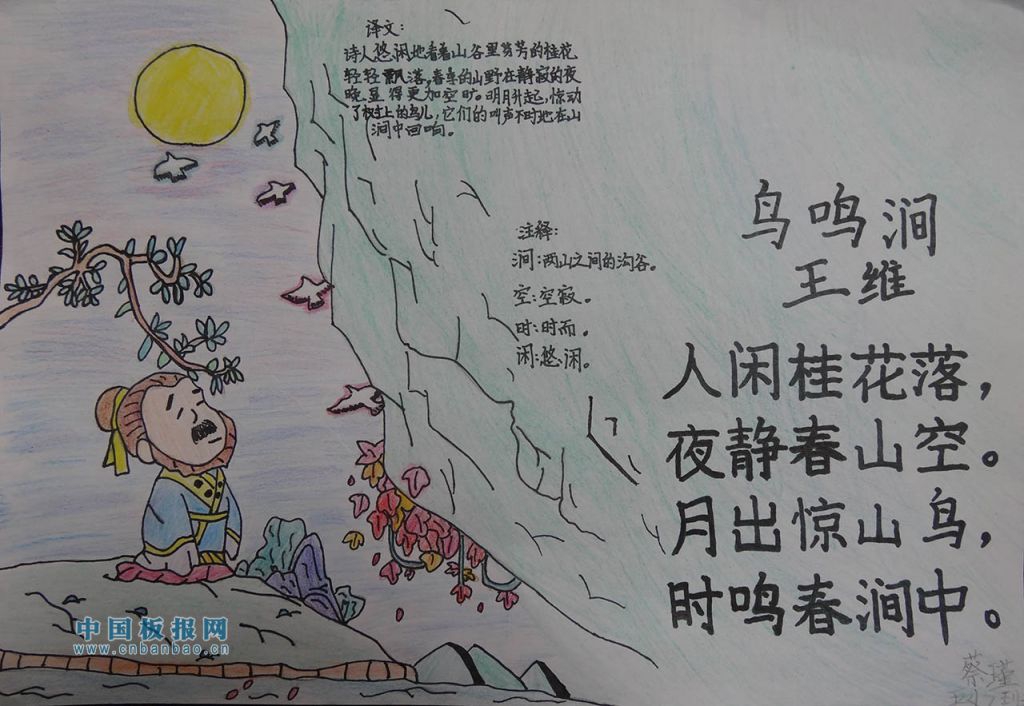 译文:
诗人悠闲地看着山谷里芬芳的桂花
轻轻飘落,春季的山野在静寂的夜
晚显得更加空旷。明月升起,惊动
了树上的鸟儿,它们的叫声不时地在山
涧中回响。
注释:
涧:两山之间的沟谷。
空:空寂。
时:时而。
闲:悠闲。
鸟鸣涧
王维
人闲桂花落,
夜静春山空。
月出惊山鸟,
时鸣春涧中。
中国板报网
www.cnbanbao.cn
蔡瑾